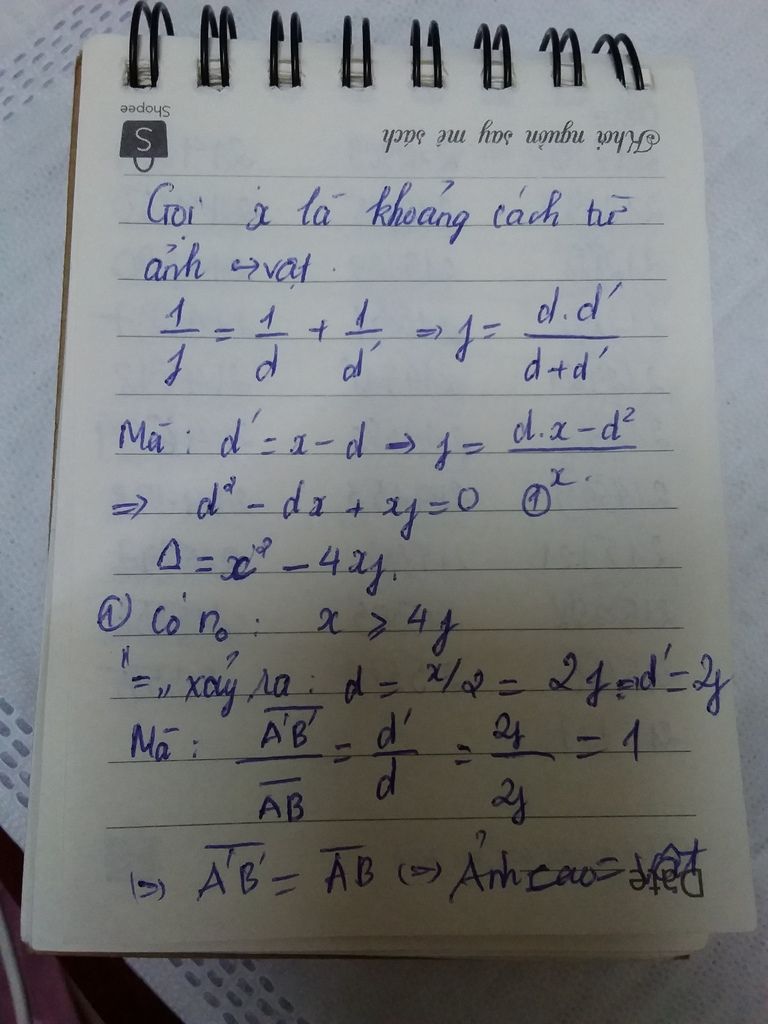 Shopee
S
Khơi nguồn say mê sách
Gọi x là khoảng cách từ
ảnh ↔ vật.
1/f = 1/d + 1/d' ⇒ f = d.d'/d+d'
Mà: d' = x - d → f = d.x - d²/x.
⇒ d² - dx + xf = 0 ①
Δ = x² - 4xf.
① Có n₀: x ≥ 4f
"=" xảy ra: d = x/2 = 2f ⇒ d' = 2f
Mà: A'B'/AB = d'/d = 2f/2f = 1
⇔ A'B' = AB ⇔ Ảnh cao = vật
Date